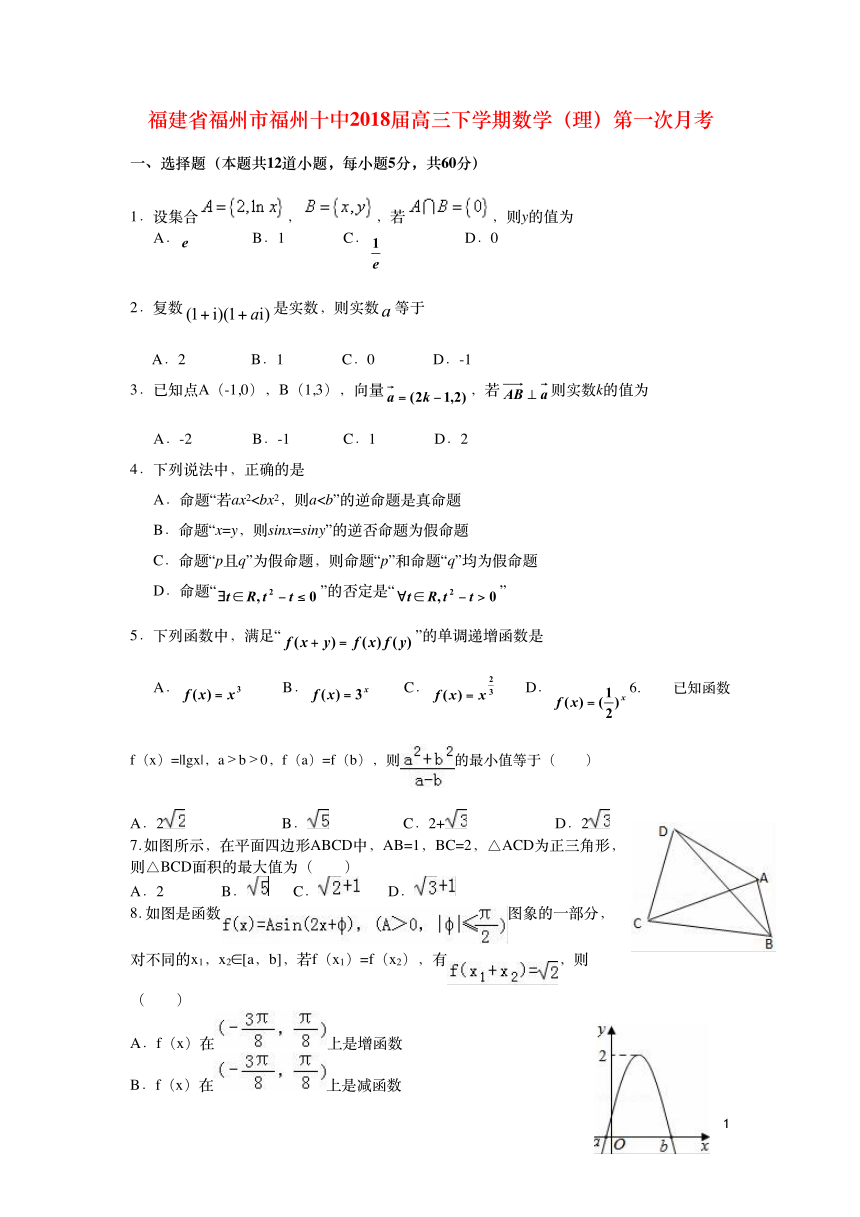 福建省福州市福州十中2018届高三下学期数学（理）第一次月考
一、选择题（本题共12道小题，每小题5分，共60分）
1．设集合A={2,ln x}，B={x,y}，若A∩B={0}，则y的值为
A．e B．1 C．1/e D．0
2．复数(1+i)(1+ai)是实数，则实数a等于
A．2 B．1 C．0 D．-1
3．已知点A（-1,0），B（1,3），向量a⃗=(2k−1,2)，若AB⃗⊥a⃗则实数k的值为
A．-2 B．-1 C．1 D．2
4．下列说法中，正确的是
A．命题“若ax²<bx²，则a<b”的逆命题是真命题
B．命题“x=y，则sinx=siny”的逆否命题为假命题
C．命题“p且q”为假命题，则命题“p”和命题“q”均为假命题
D．命题“∃t∈R,t²−t≤0”的否定是“∀t∈R,t²−t>0”
5．下列函数中，满足“f(x+y)=f(x)f(y)”的单调递增函数是
A．f(x)=x³ B．f(x)=3ˣ C．f(x)=x^(2/3) D．f(x)=(1/2)ˣ 6． 已知函数
f（x）=|lgx|，a＞b＞0，f（a）=f（b），则(a²+b²)/(a-b)的最小值等于（ ）
A．2√2 B．√5 C．2+√3 D．2√3
7.如图所示，在平面四边形ABCD中，AB=1，BC=2，△ACD为正三角形，
则△BCD面积的最大值为（ ）
A．2 B．√5 C．√2+1 D．√3+1
D
A
C
B
8.如图是函数f(x)=Asin(2x+φ)，(A＞0，|φ|≤π/2)图象的一部分，
对不同的x₁，x₂∈[a，b]，若f（x₁）=f（x₂），有f(x₁+x₂)=√2，则
（ ）
A．f（x）在(-3π/8，π/8)上是增函数
B．f（x）在(-3π/8，π/8)上是减函数
y
2
a O b x
1